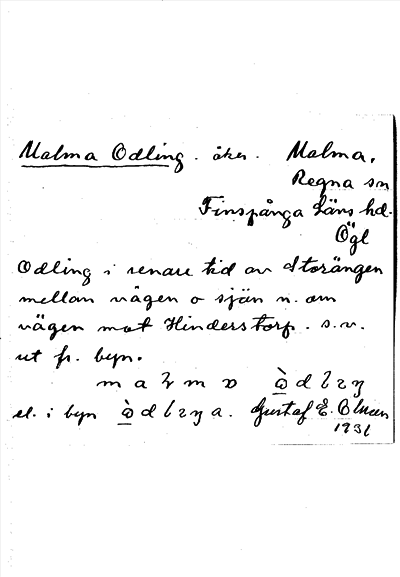 Malma Odling. åker. Malma,
Regna sn
Finspånga Läns hd.
Ögl
Odling i senare tid av Storängen
mellan vägen o sjön n. om
vägen mot Hinderstorp. s.v.
ut fr. byn.
el. i byn
Gustaf E.
1931